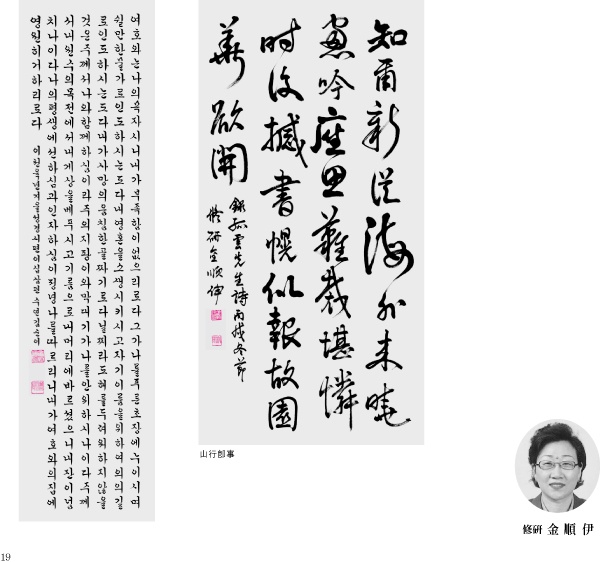 여호와는나의목자시니내가부족함이없으리로다그가나를푸른초장에누이시며
쉴만한물가로인도하시는도다내영혼을소생시키시고자기이름을위하여의의길
로인도하시는도다내가사망의음침한골짜기로다닐찌라도해를두려워하지않을
것은주께서나와함께하심이라주의지팡이와막대기가나를안위하시나이다주께
서내원수의목전에서내게상을베푸시고기름으로내머리에바르셨으니내잔이넘
치나이다나의평생에선하심과인자하심이정녕나를따르리니내가여호와의집에
영원히거하리로다
이천육년겨울성경시편이십삼편 수연김순이
知爾新從海外來曉
窓吟座思難裁堪憐
時復撼書幌似報故園
華欲開
錄孤雲先生詩丙戌冬節
修硏金順伊
山行卽事
修硏 金順伊
19